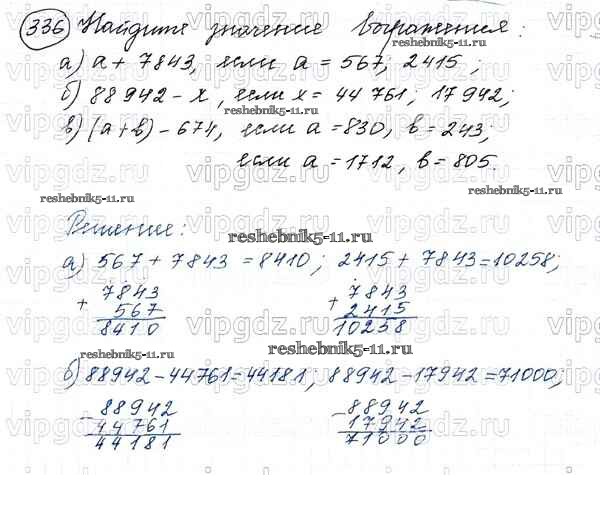 336 Найдите значение выражения:
а) a + 7843, если a = 567; 2415;
б) 88942 - x, если x = 44 761; 17 942;
в) (a + b) - 674, если a = 830, b = 243;
если a = 1712, b = 805.
Решение:
а) 567 + 7843 = 8410; 2415 + 7843 = 10258;
7843 7843
+ 567 + 2415
8410 10258
б) 88942 - 44761 = 44181; 88942 - 17942 = 71000;
88942 88942
- 44761 - 17942
44181 71000
vipgdz.ru
reshebnik5-11.ru